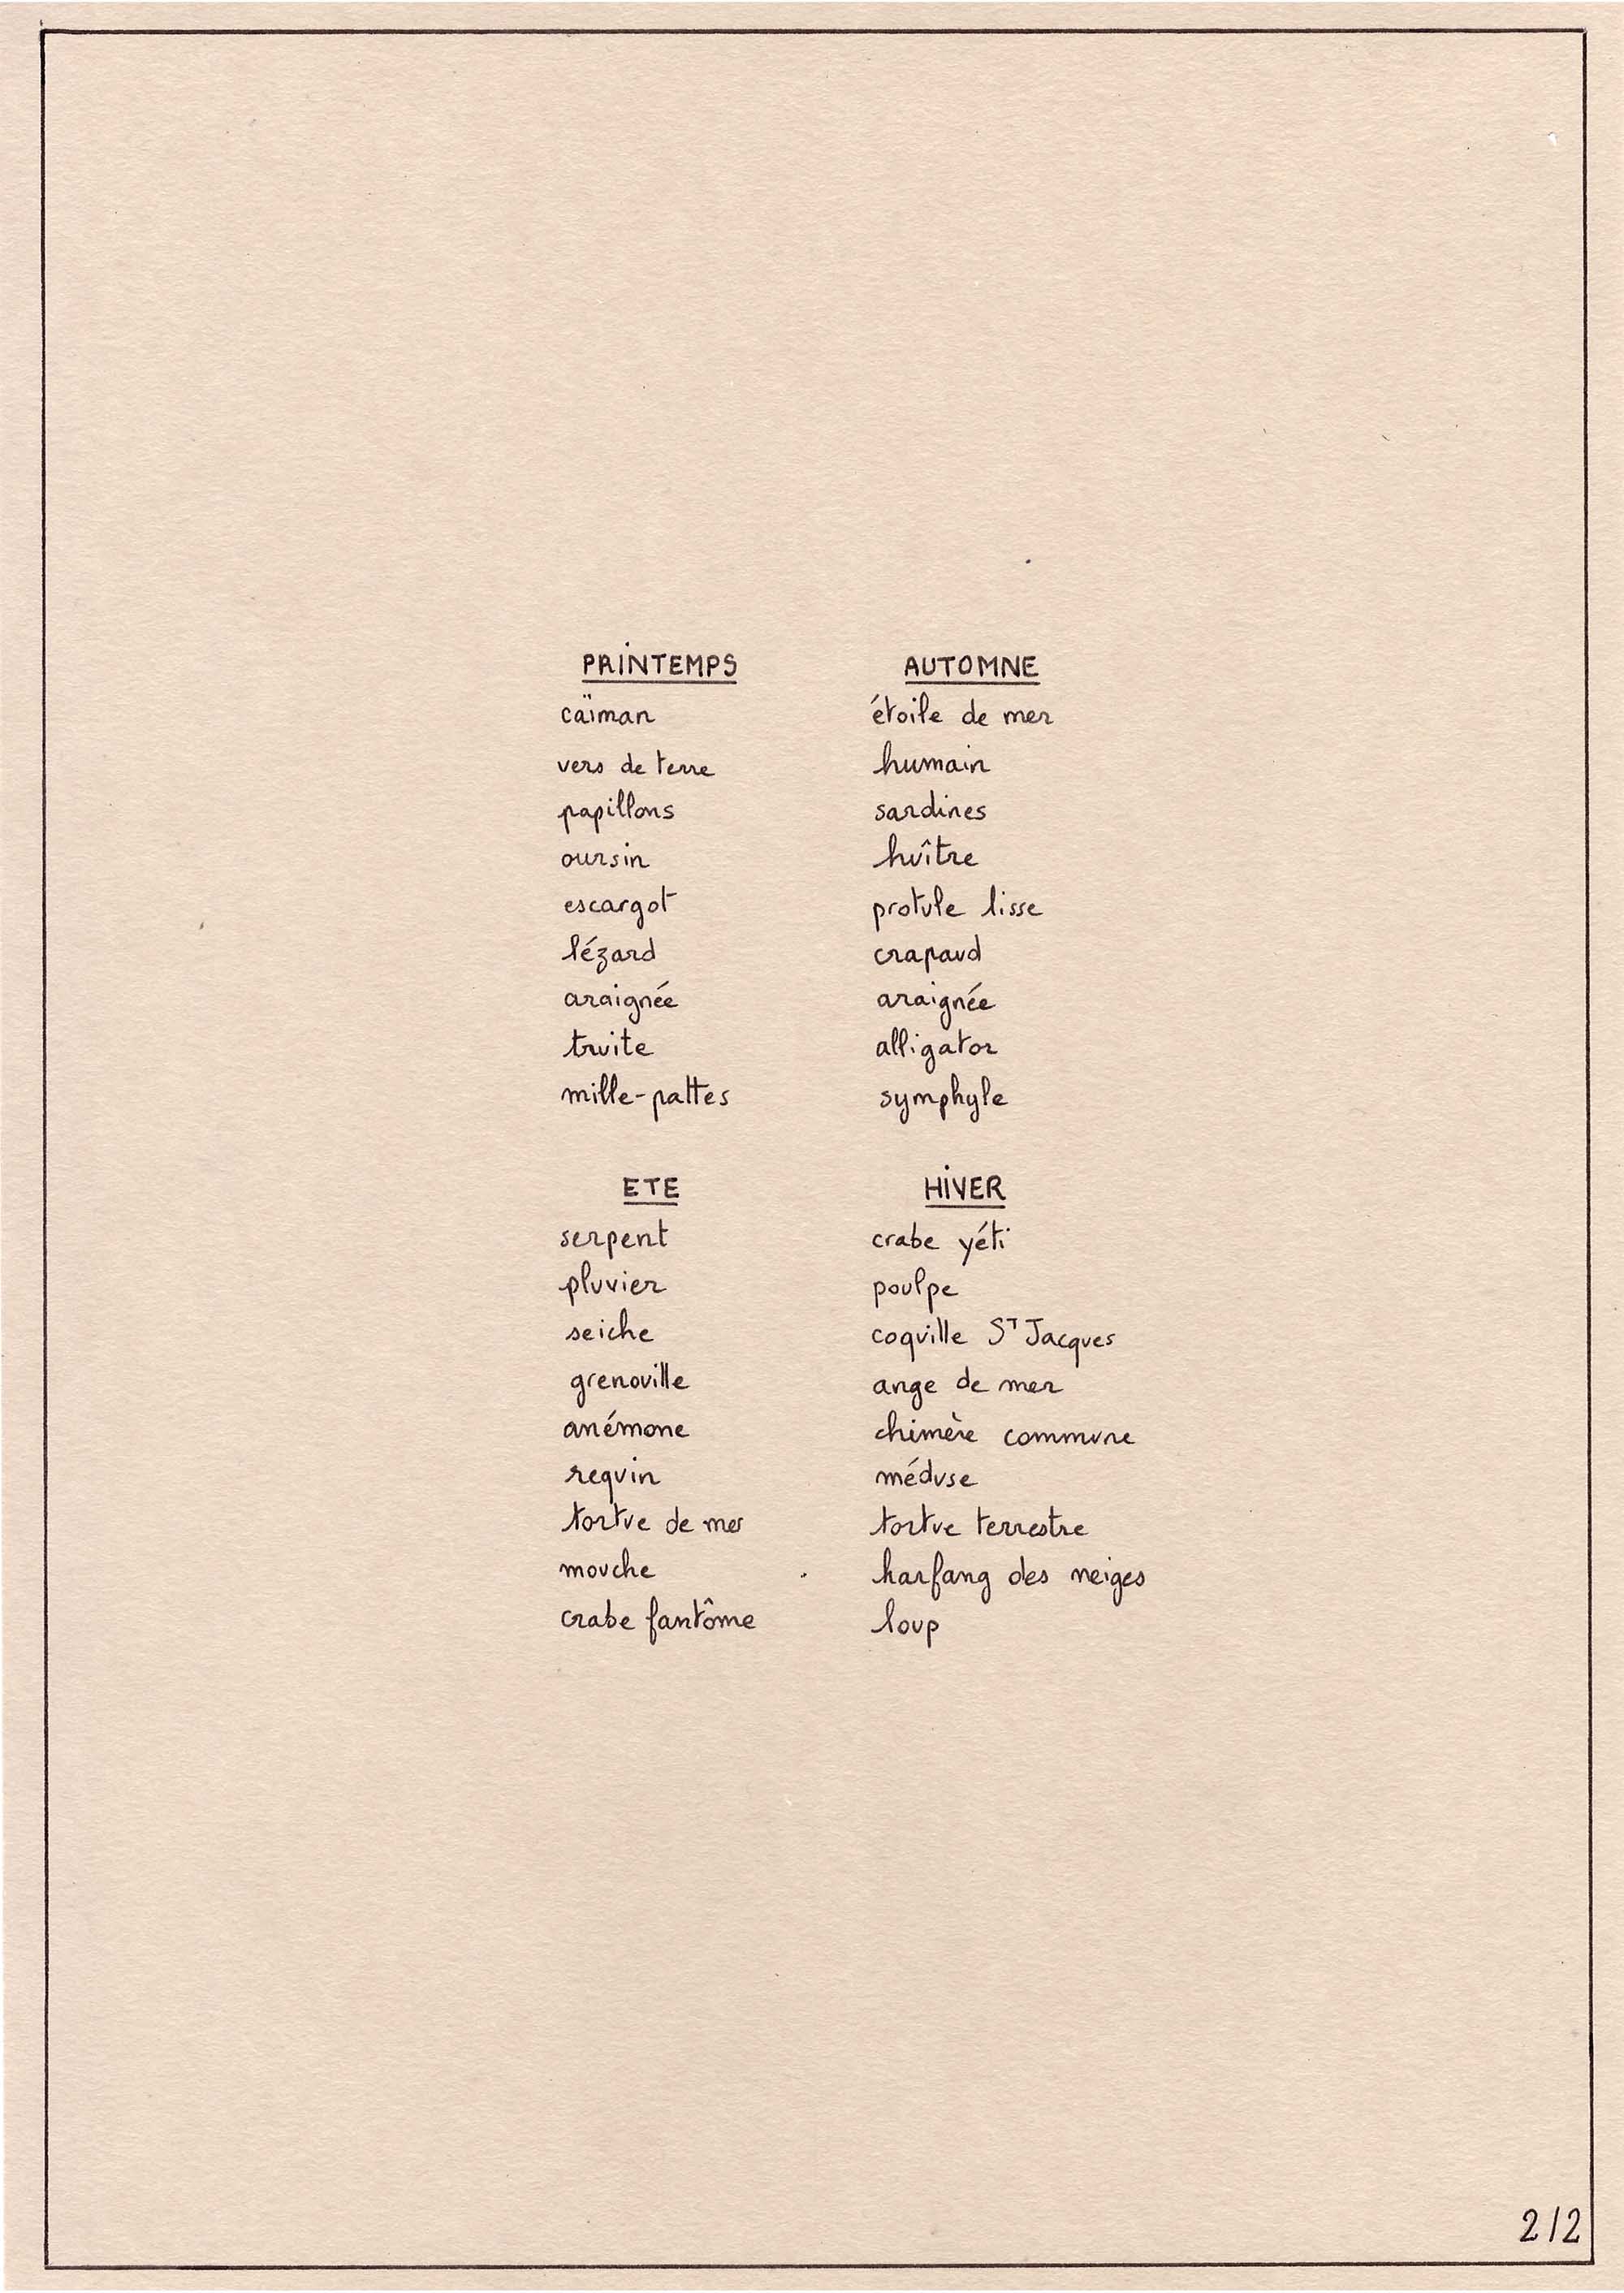 PRINTEMPS
caïman
vers de terre
papillons
oursin
escargot
lézard
araignée
truite
mille-pattes
AUTOMNE
étoile de mer
humain
sardines
huître
protule lisse
crapaud
araignée
alligator
symphyle
ETE
serpent
pluvier
seiche
grenouille
anémone
requin
tortue de mer
mouche
crabe fantôme
HIVER
crabe yéti
poulpe
coquille ST Jacques
ange de mer
chimère commune
méduse
tortue terrestre
harfang des neiges
loup
2/2